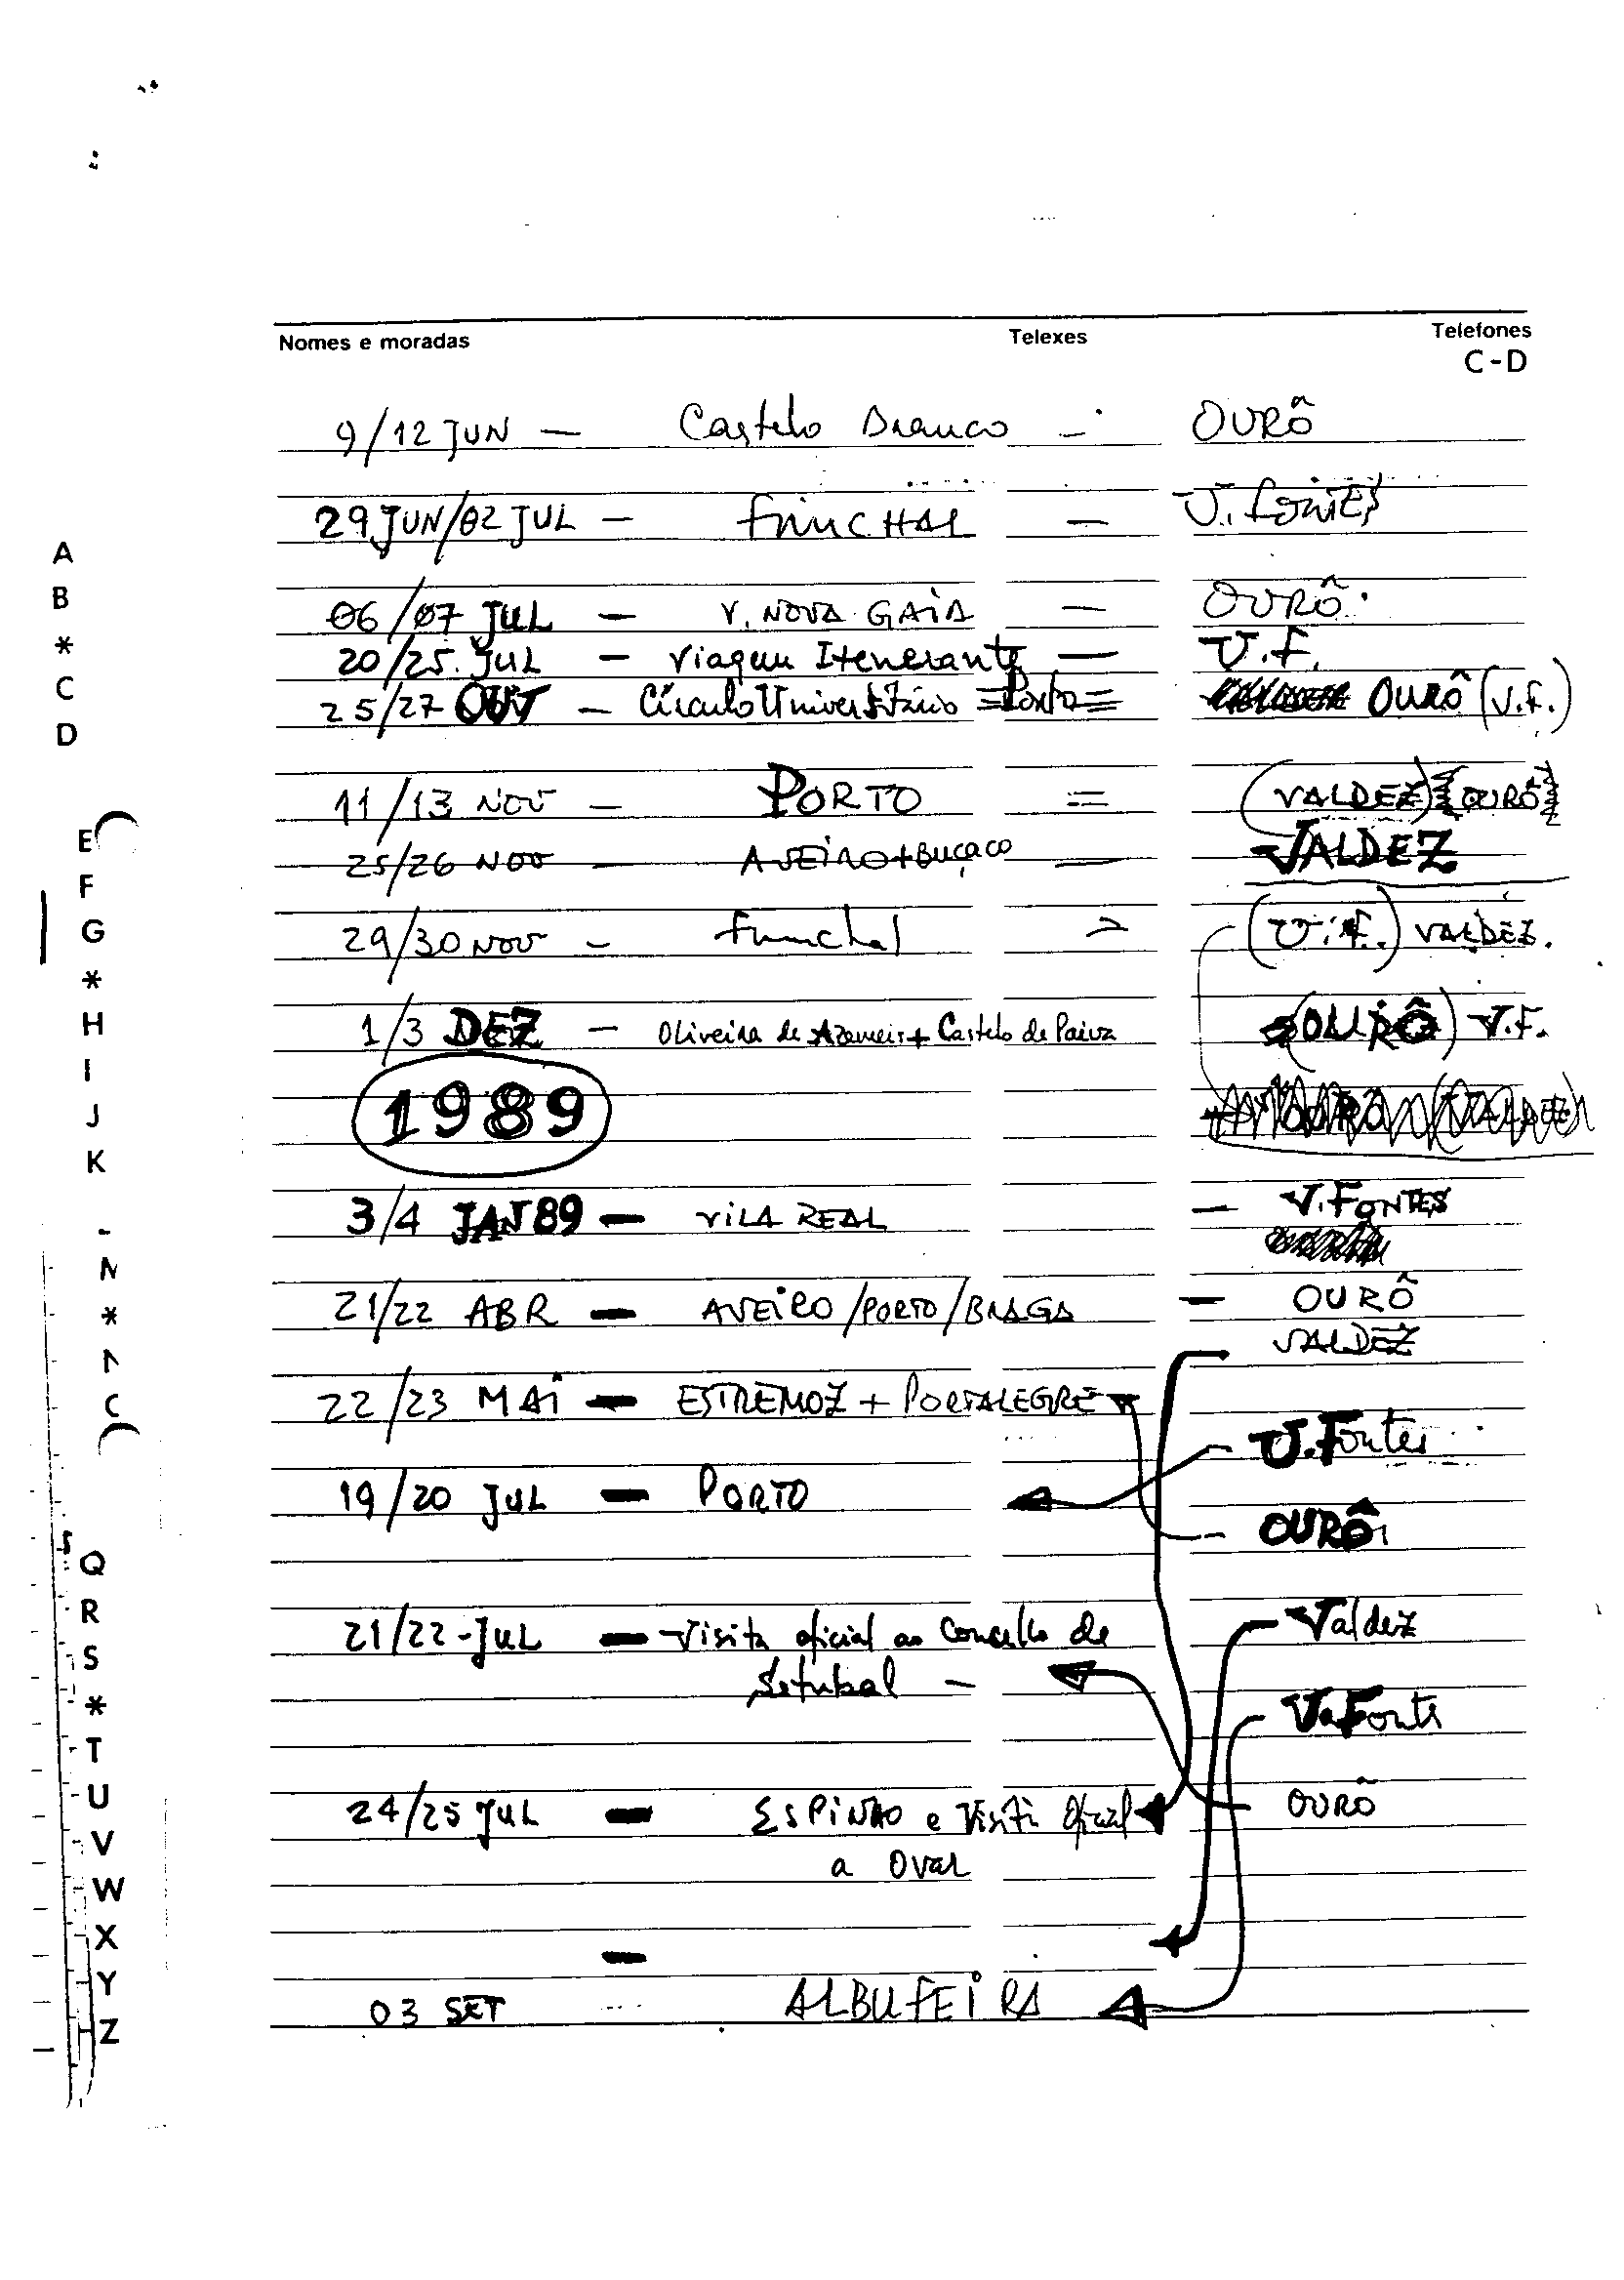 Nomes e moradas Telexes Telefones
C-D
9/12 JUN — Castelo Branco — OURÔ
29 JUN/02 JUL — FUNCHAL — V. FONTES
06/07 JUL — V. NOVA GAIA — OURÔ
20/25 JUL — Viagem Itenerante — V.F.
25/27 OUT — Círculo Universitário = Porto = OURÔ (V.F.)
11/13 NOV — PORTO = (VALDEZ) OURÔ
25/26 NOV — AVEIRO + BUÇACO — VALDEZ
29/30 NOV — Funchal = (V.F.) VALDEZ.
1/3 DEZ — Oliveira de Azemeis + Castelo de Paiva (OURÔ) V.F.
1989 OURÔ (VALDEZ)
3/4 JAN 89 — VILA REAL — V. FONTES
21/22 ABR — AVEIRO/PORTO/BRAGA — OURÔ
VALDEZ
22/23 MAI — ESTREMOZ + PORTALEGRE
V. Fontes
19/20 JUL — PORTO
OURÔ
21/22 - JUL — Visita oficial ao Concelho de Valdez
Setubal —
V. Fonte
24/25 JUL — ESPINHO e Visita Oficial OURÔ
a Ovar
—
03 SET ALBUFEIRA
A
B
*
C
D
E
F
G
*
H
I
J
K
-
M
*
N
Q
R
S
*
T
U
V
W
X
Y
Z